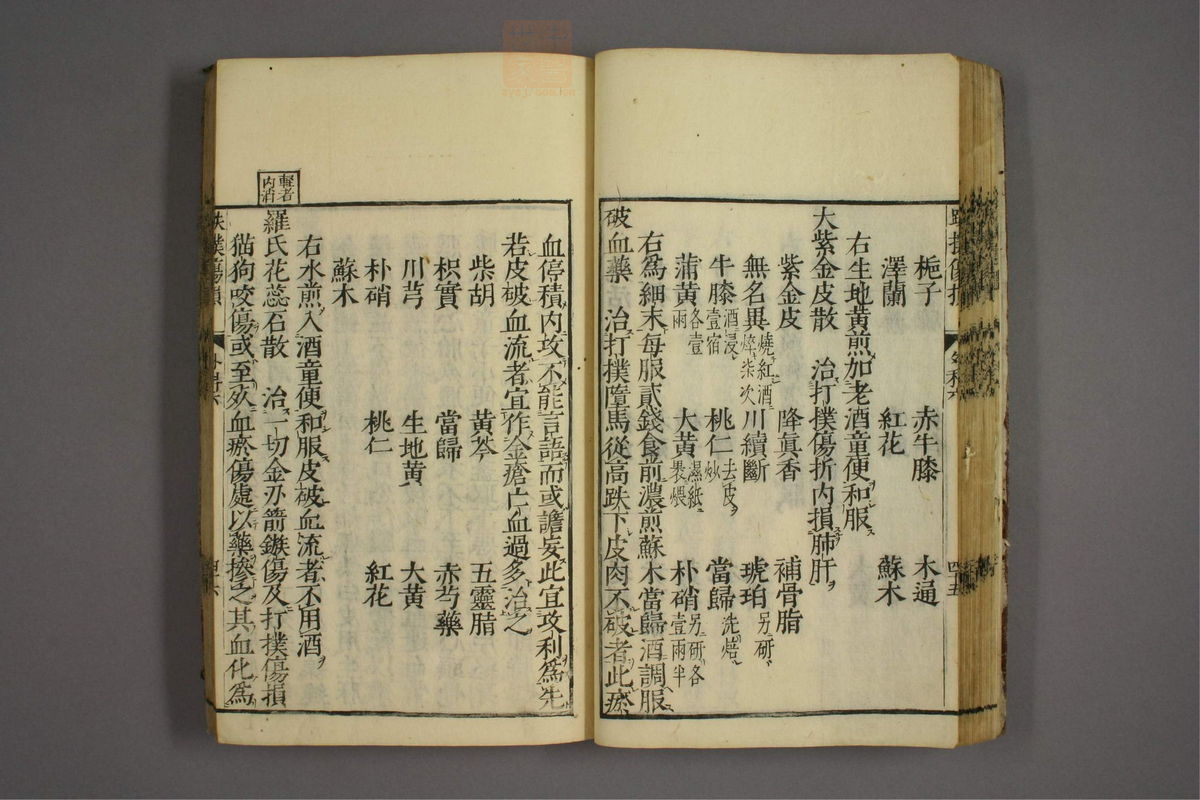 梔子 赤牛膝 木通
澤蘭 紅花 蘇木
右生地黄煎加老酒童便和服
大紫金皮散 治打撲傷折内損肺肝
紫金皮 降眞香 補骨脂
無名異燒紅酒淬柒次 川續斷 琥珀另研
牛膝酒浸壹宿 桃仁去皮炒 當歸洗焙
蒲黄各壹兩 大黄濕紙裹煨 朴硝另研各壹兩半
右爲細末每服貳錢食前濃煎蘇木當歸酒調服
破血藥 治打撲墮馬從高跌下皮肉不破者此瘀
血停積内攻不能言語而或譫妄此宜攻利爲先
若皮破血流者宜作金瘡亡血過多治之
柴胡 黄芩 五靈脂
枳實 當歸 赤芍藥
川芎 生地黄 大黄
朴硝 桃仁 紅花
蘇木
右水煎入酒童便和服皮破血流者不用酒
輕者内消
羅氏花蕊石散 治一切金刅箭鏃傷及打撲傷損
猫狗咬傷或至死血瘀傷處以藥摻之其血化爲
跌撲傷損 外科六 四六